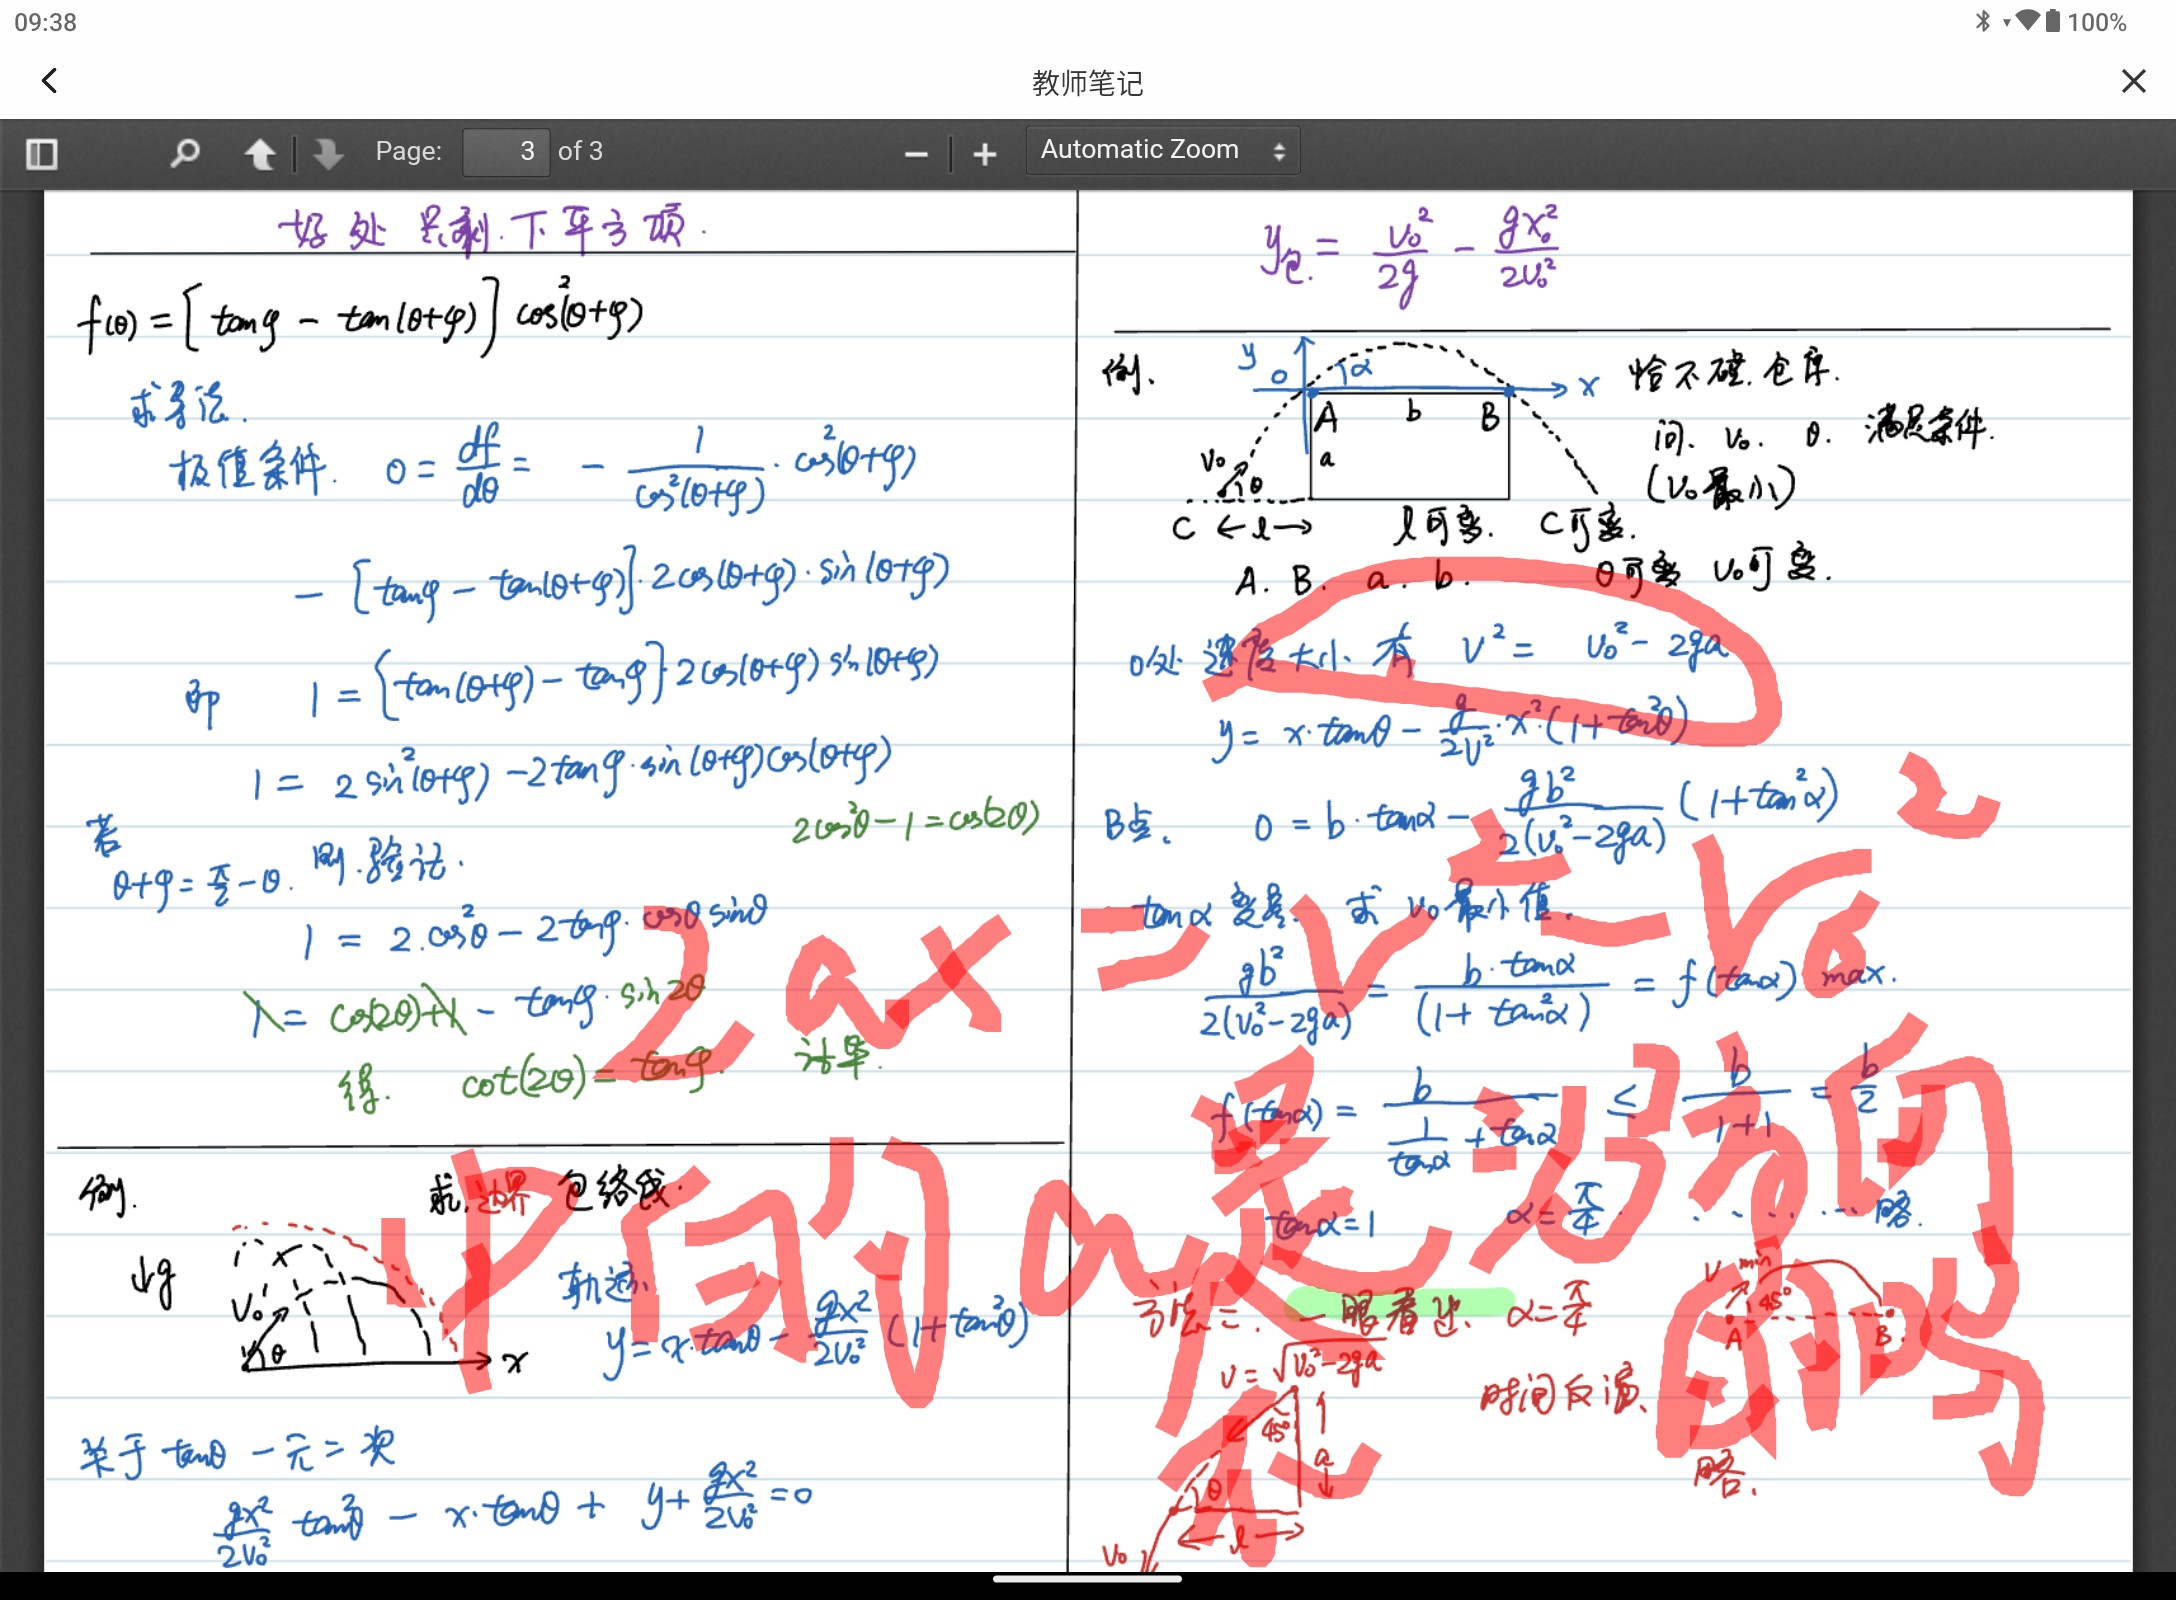 09:38
100%
教师笔记
Page: 3 of 3
Automatic Zoom
好处 只剩下平方项.
f(θ) = [tanφ - tan(θ+φ)] cos²(θ+φ)
求导法.
极值条件. 0 = df/dθ = - 1/cos²(θ+φ) · cos²(θ+φ)
- [tanφ - tan(θ+φ)]·2cos(θ+φ)·sin(θ+φ)
即 1 = [tan(θ+φ) - tanφ]·2cos(θ+φ)sin(θ+φ)
1 = 2sin²(θ+φ) - 2tanφ·sin(θ+φ)cos(θ+φ)
2cos²θ - 1 = cos(2θ)
若 θ+φ = π/2 - θ. 则.验证.
1 = 2.cos²θ - 2tanφ·cosθ sinθ
1 = cos(2θ)+1 - tanφ·sin2θ
得. cot(2θ) = tanφ.
例. 求边界 包络线.
↓g
v₀
θ
x
轨迹
y = x·tanθ - gx²/2v₀² (1+tan²θ)
关于 tanθ 一元二次
gx²/2v₀² tan²θ - x·tanθ + y + gx²/2v₀² = 0
y包. = v₀²/2g - gx₀²/2v₀²
例. y O α x 恰不碰.仓库.
A b B
问. v₀. θ. 满足条件.
v₀ θ a (v₀最小)
C ←l→ l可变. C可变.
A. B. a. b. θ可变 v₀可变.
O处 速度大小 有 v² = v₀² - 2ga
y = x·tanθ - g/2v²·x²·(1+tan²θ)
B点. 0 = b·tanα - gb²/2(v₀²-2ga) (1+tan²α)
tanα 变量. 求 v₀最小值.
gb²/2(v₀²-2ga) = b·tanα/(1+tan²α) = f(tanα) max.
f(tanα) = b/(1/tanα + tanα) ≤ b/(1+1) = b/2
tanα=1 α=π/4. ...... 略.
方法二. 一眼看过 α=π/4
v min 45° A B
v = √(v₀²-2ga)
时间反演.
45° a
略.
θ l
v₀
2ax = v² - v₀²
中间的a是物